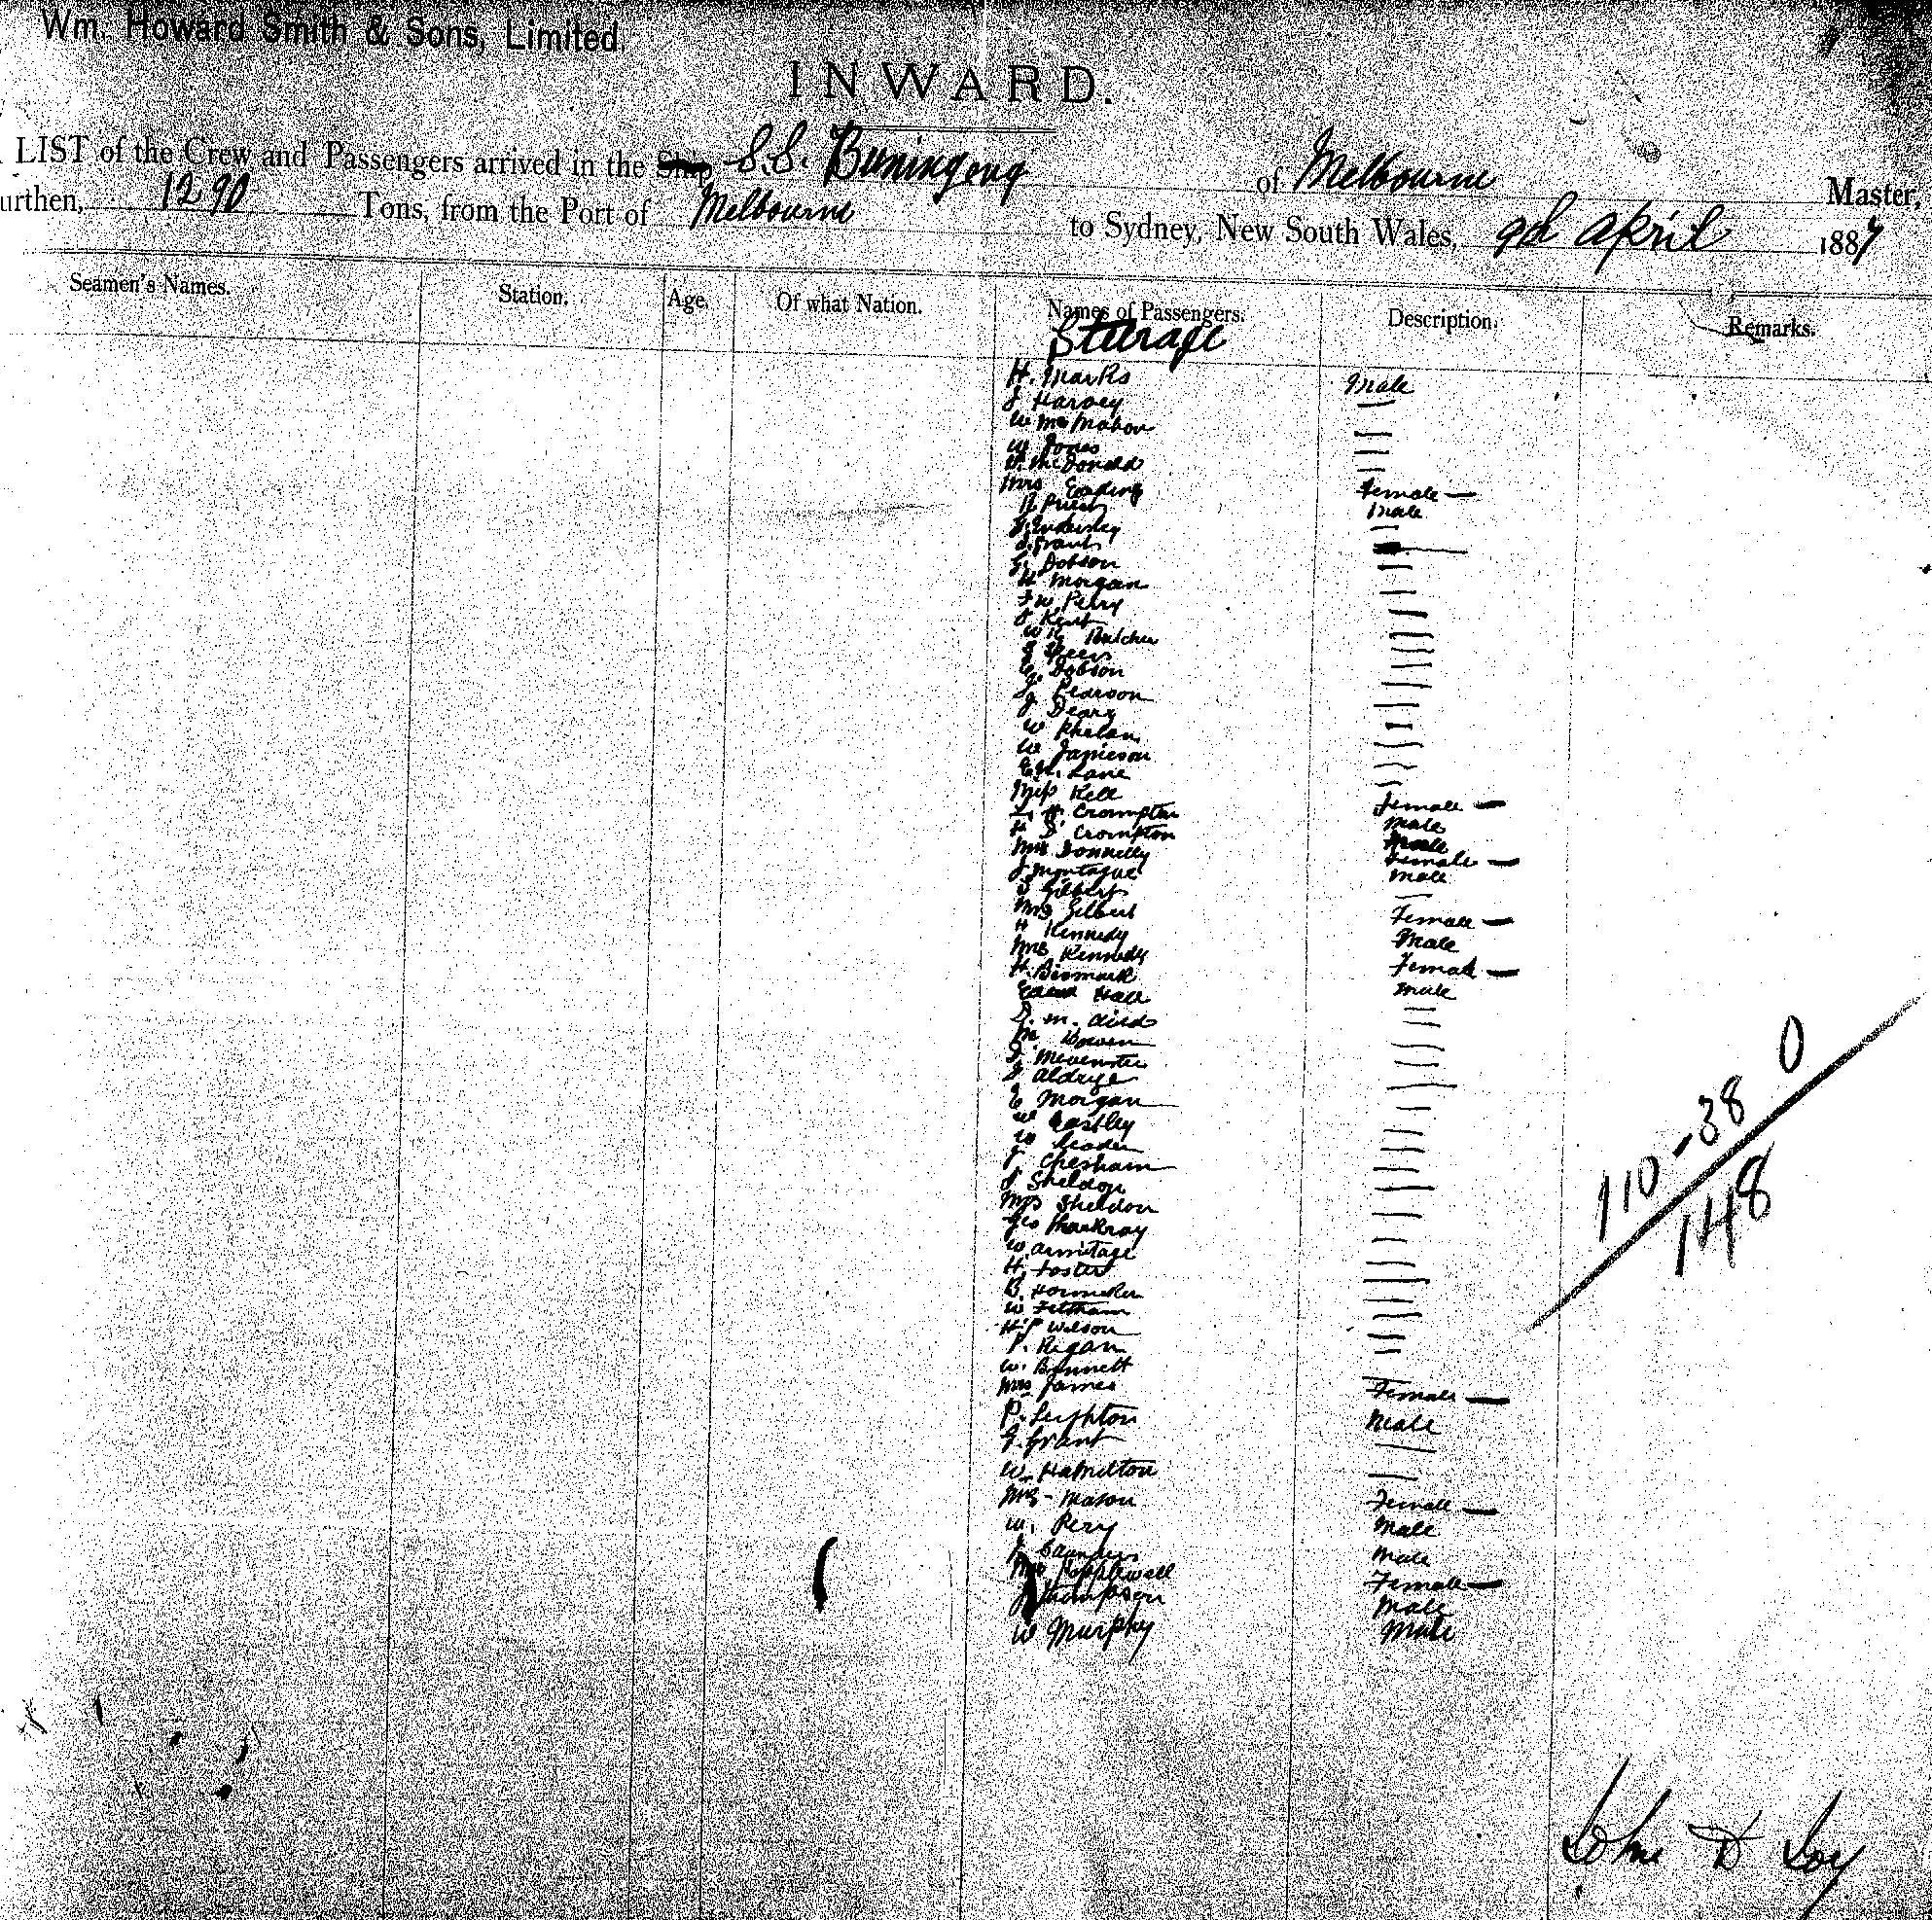 Wm. Howard Smith & Sons, Limited.
INWARD.
LIST of the Crew and Passengers arrived in the Ship S.S. Buningong of Melbourne Master,
urthen, 1290 Tons, from the Port of Melbourne to Sydney, New South Wales, 9th April 1887
Seamen's Names. Station. Age. Of what Nation. Names of Passengers. Description. Remarks.
Steerage
H. Marks Male
J Harvey —
W McMahon —
W Jones —
McDonald —
Mrs Female —
R. Priest Male
J. Grant
G. Dobson —
H Morgan —
F W. Perry —
J Kent —
W R Butcher —
—
E. Dobson —
J. Pearson —
J Deary —
W Phelan —
W Jamieson —
Lane —
Miss Kell Female —
L. H. Crompton Male
H S. Crompton Male
Mrs Donnelly Female —
J Montague Male
S Gilbert —
Mrs Gilbert Female —
H Kennedy Male
Mrs Kennedy Female —
H. Bismark Male
Hall —
J. M. Aird —
M Bowen —
J.
J Aldryge —
E Morgan —
W Eastley —
W Leader —
J Chesham —
J Sheldon —
Mrs Sheldon —
Geo MacKray —
W. Armitage —
H. Foster —
B.
W Feltham —
H J Wilson —
P. Regan —
W. Bennett —
Mrs James Female —
P. Leighton Male
J. Grant —
W. Hamilton —
Mrs - Mason Female —
W. Pery Male
J Saunders Male
Mrs Popplewell Female —
J Thompson Male
W Murphy Male
110 - 38 0
148
John D Loy